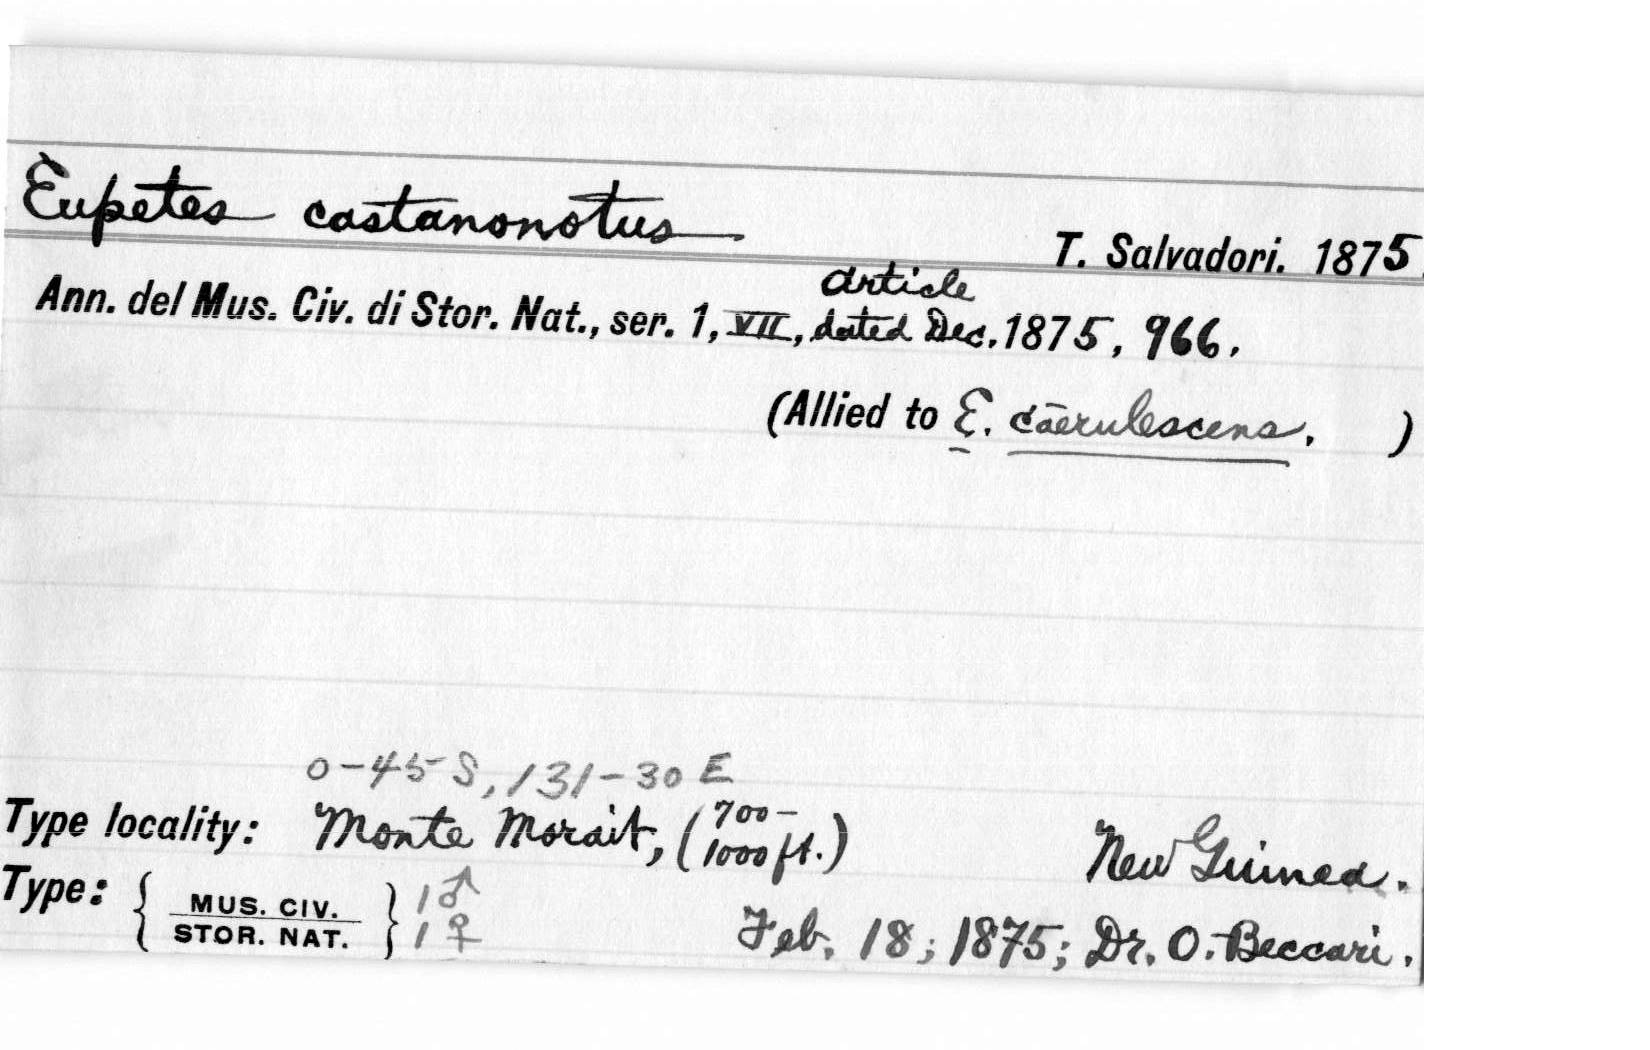 Eupetes castanonotus T. Salvadori. 1875.
article
Ann. del Mus. Civ. di Stor. Nat., ser. 1, VII, dated Dec. 1875, 966.
(Allied to E. cāerulescens. )
0-45 S, 131-30 E
Type locality: Monte Morait, (700-1000 ft.) New Guinea.
Type: { MUS. CIV. STOR. NAT. } 1♂ 1♀
Feb. 18; 1875; Dr. O. Beccari.